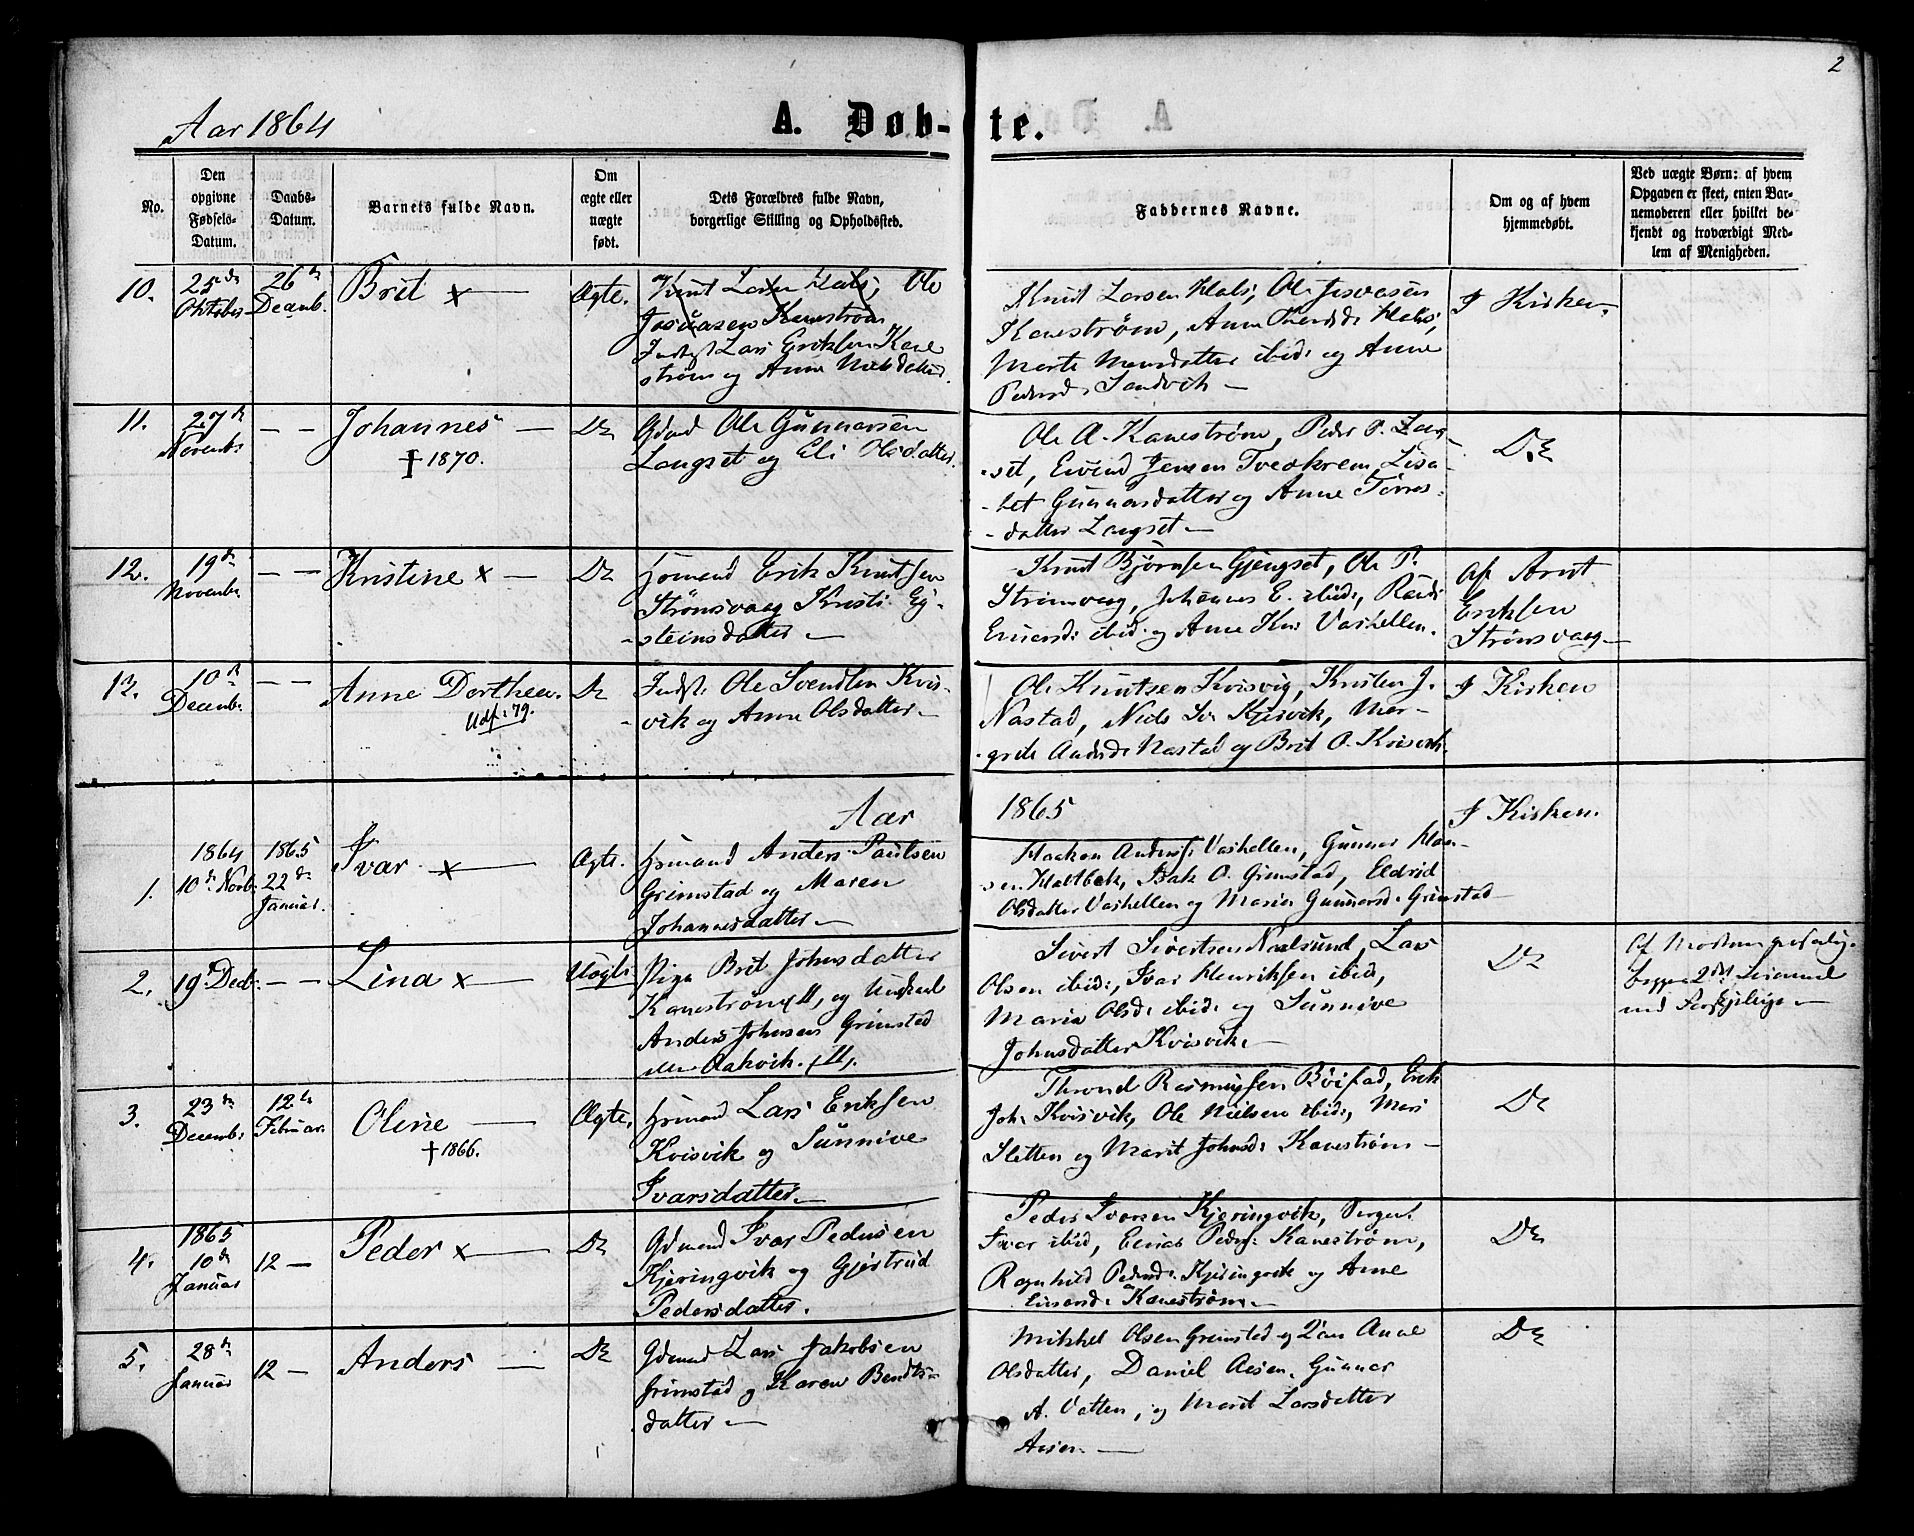 2
Aar 1864
A. Døb-
te.
No.
Den opgivne Fødsels-Datum.
Daabs-Datum.
Barnets fulde Navn.
Om ægte eller uægte født.
Dets Forældres fulde Navn, borgerlige Stilling og Opholdssted.
Faddernes Navne.
Om og af hvem hjemmedøbt.
Ved uægte Børn: af hvem Opgaven er skeet, enten Barnemoderen eller hvilket bekjendt og troværdigt Medlem af Menigheden.
10.
25de Oktober
26de Decemb.
Brit x —
Ægte.
Knut Larsen Hals, Ole
Josuasen Kanestrøm
Lars Eriksen Kane
strøm og Anne
Knut Larsen Hals, Ole Josvasen
Kanestrøm, Anne Hals,
Marte ibid: og Anne
Pedersd: Sandvik —
I Kirken.
11.
27de Novemb:
— —
Johannes —
† 1870.
Do
Gdmd Ole Gunnarsen
Langset og Eli Olsdatter.
Ole A. Kanestrøm, Peder P. Lang
-set, Eivind Jensen Tvedkrem, Lisa
-bet Gunnarsdatter og Anne Tørres-
-datter Langset —
Do
12.
19de Novembr
— —
Kristine x —
Do
Huusmand Erik Knutsen
Strømsvaag Kristi Ey-
-steinsdatter —
Knut Bjørnsen Gjengset, Ole P.
Strømsvaag, Johannes E. ibid:, Randi
Einarsd: ibid: og Anne Kn: Vashellen.
Af Arnt
Eriksen
Strømsvaag —
12.
10de Decemb:
— —
Anne Dorthea.
Udf: 79.
Do
Inds: Ole Svendsen Kvis-
-vik og Anne Olsdatter —
Ole Knutsen Kvisvig, Kristen J.
Nastad, Niels Kvisvik, Mar-
-grete Andersd: Nastad og Brit O. Kvisvik.
I Kirken
Aar
1865
1.
1864
10de Novb:
1865
22de Januar.
Ivar x —
Ægte.
Huusmand Anders Paulsen
Grimstad og Maren
Johannesdatter —
Haakon Anders: Vashellen, Gunnar Han-
sen Holtbak, Isak O. Grimstad, Eldrid
Olsdatter Vashellen og Maria Gunnarsd: Grimstad
I Kirken.
2.
19 Decb:
— —
Lina x —
Uægte
Pige Brit Johnsdatter
Kanestrøm, og Ungkarl
Anders Johnsen Grimstad
eller Aakvik.
Sivert Sivertsen Naalsund, Lars
Olsen ibid:, Ivar Henriksen ibid:,
Maria Olsd: ibid: og Sunnive
Johnsdatter Kvisvik. —
Do
Af Moderen
begges 2det Leiermaal
med
3.
23de Decemb:
12te Februar.
Oline —
† 1866.
Ægte.
Huusmand Lars Eriksen
Kvisvik og Sunnive
Ivarsdatter —
Thrond Rasmussen Bøifad, Erik
Joh: Kvisvik, Ole Nielsen ibid:, Mari
Sletten og Marit Johnsd: Kanestrøm —
Do
4.
1865
10de Januar
12 —
Peder x —
Do
Gdmand Ivar Pedersen
Kjeringvik og Gjertrud
Pedersdatter.
Peder Ivarsen Kjeringvik, Sergent
Ivar ibid, Einar Peders: Kanestrøm,
Ragnhild Pedersd: Kjeringvik og Anne
Einarsd: Kanestrøm —
Do
5.
28de Januar
12 —
Anders —
Do
Gdmand Lars Jakobsen
Grimstad og Karen Bendts-
datter —
Mikkel Olsen Grimstad og Anne
Olsdatter, Daniel Aasen, Gunnar
A. Vatten, og Marit Larsdatter
Aasen —